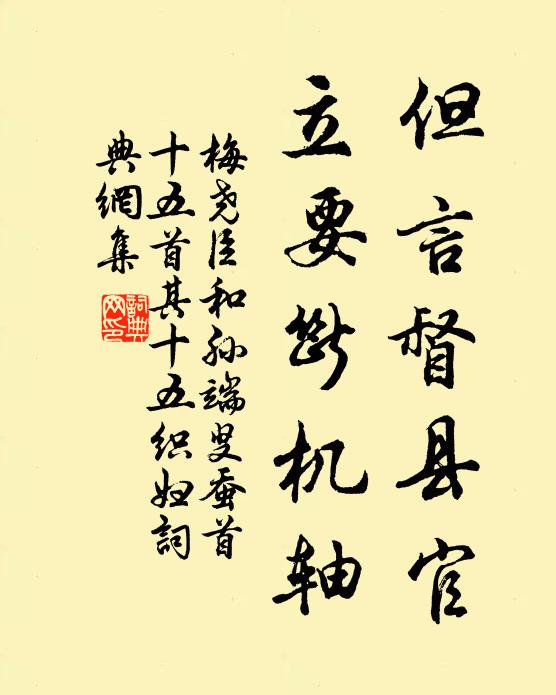 但言督县官
立要断机轴
梅尧臣和孙端叟蚕首
十五首其十五织妇詞
典網集
詞典
网印